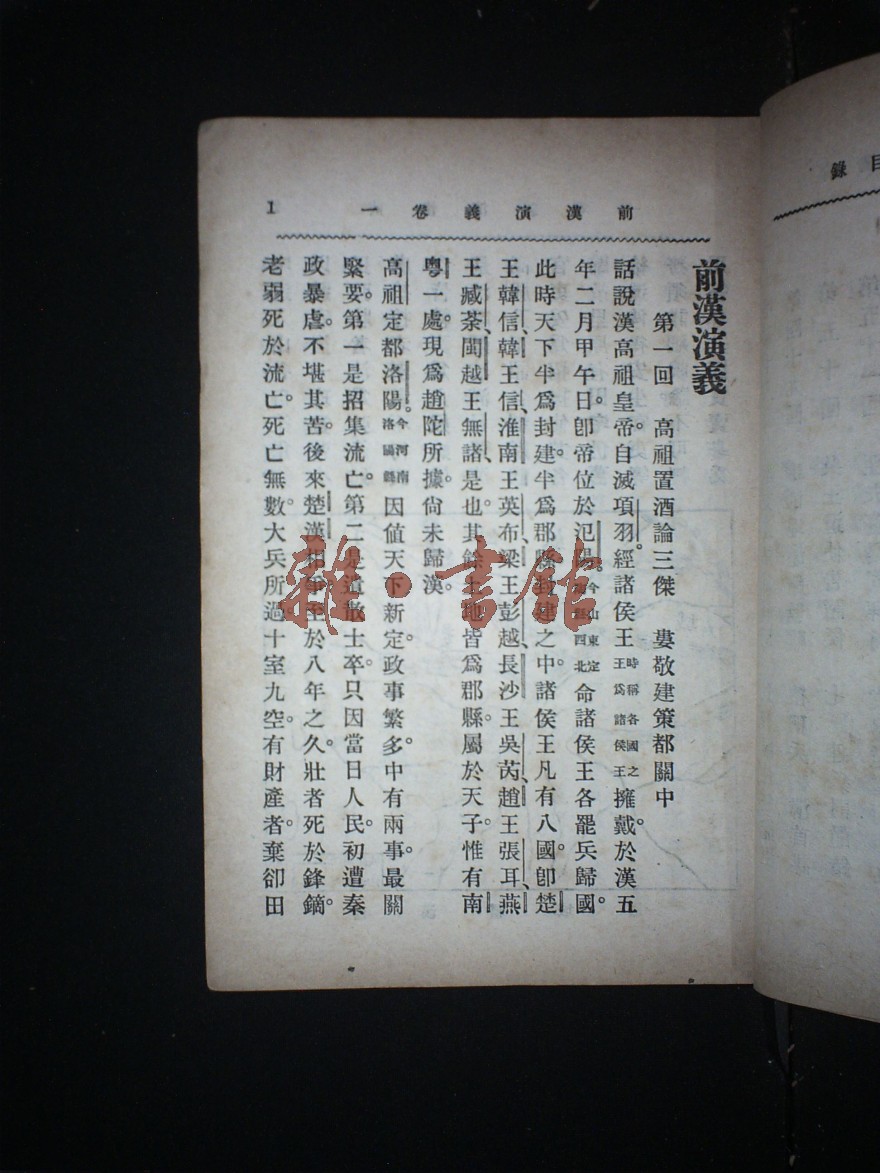 前漢演義卷一 1
前漢演義
第一回 高祖置酒論三傑 婁敬建策都關中
話說漢高祖皇帝。自滅項羽。經諸侯王時稱各國之王爲諸侯王擁戴。於漢五
年二月甲午日。卽帝位於氾陽。今山東定陶縣西北命諸侯王各罷兵歸國。
此時天下半爲封建。半爲郡縣。封建之中。諸侯王凡有八國。卽楚
王韓信、韓王信、淮南王英布、梁王彭越、長沙王吳芮、趙王張耳、燕
王臧荼、閩越王無諸是也。其餘土地皆爲郡縣。屬於天子。惟有南
粤一處。現爲趙陀所據。尙未歸漢。
高祖定都洛陽。今河南洛陽縣因値天下新定。政事繁多。中有兩事。最關
緊要。第一是招集流亡。第二是遣散士卒。只因當日人民。初遭秦
政暴虐。不堪其苦。後來楚漢相爭。至於八年之久。壯者死於鋒鏑。
老弱死於流亡。死亡無數。大兵所過。十室九空。有財產者。棄卻田
目錄
雜·書館